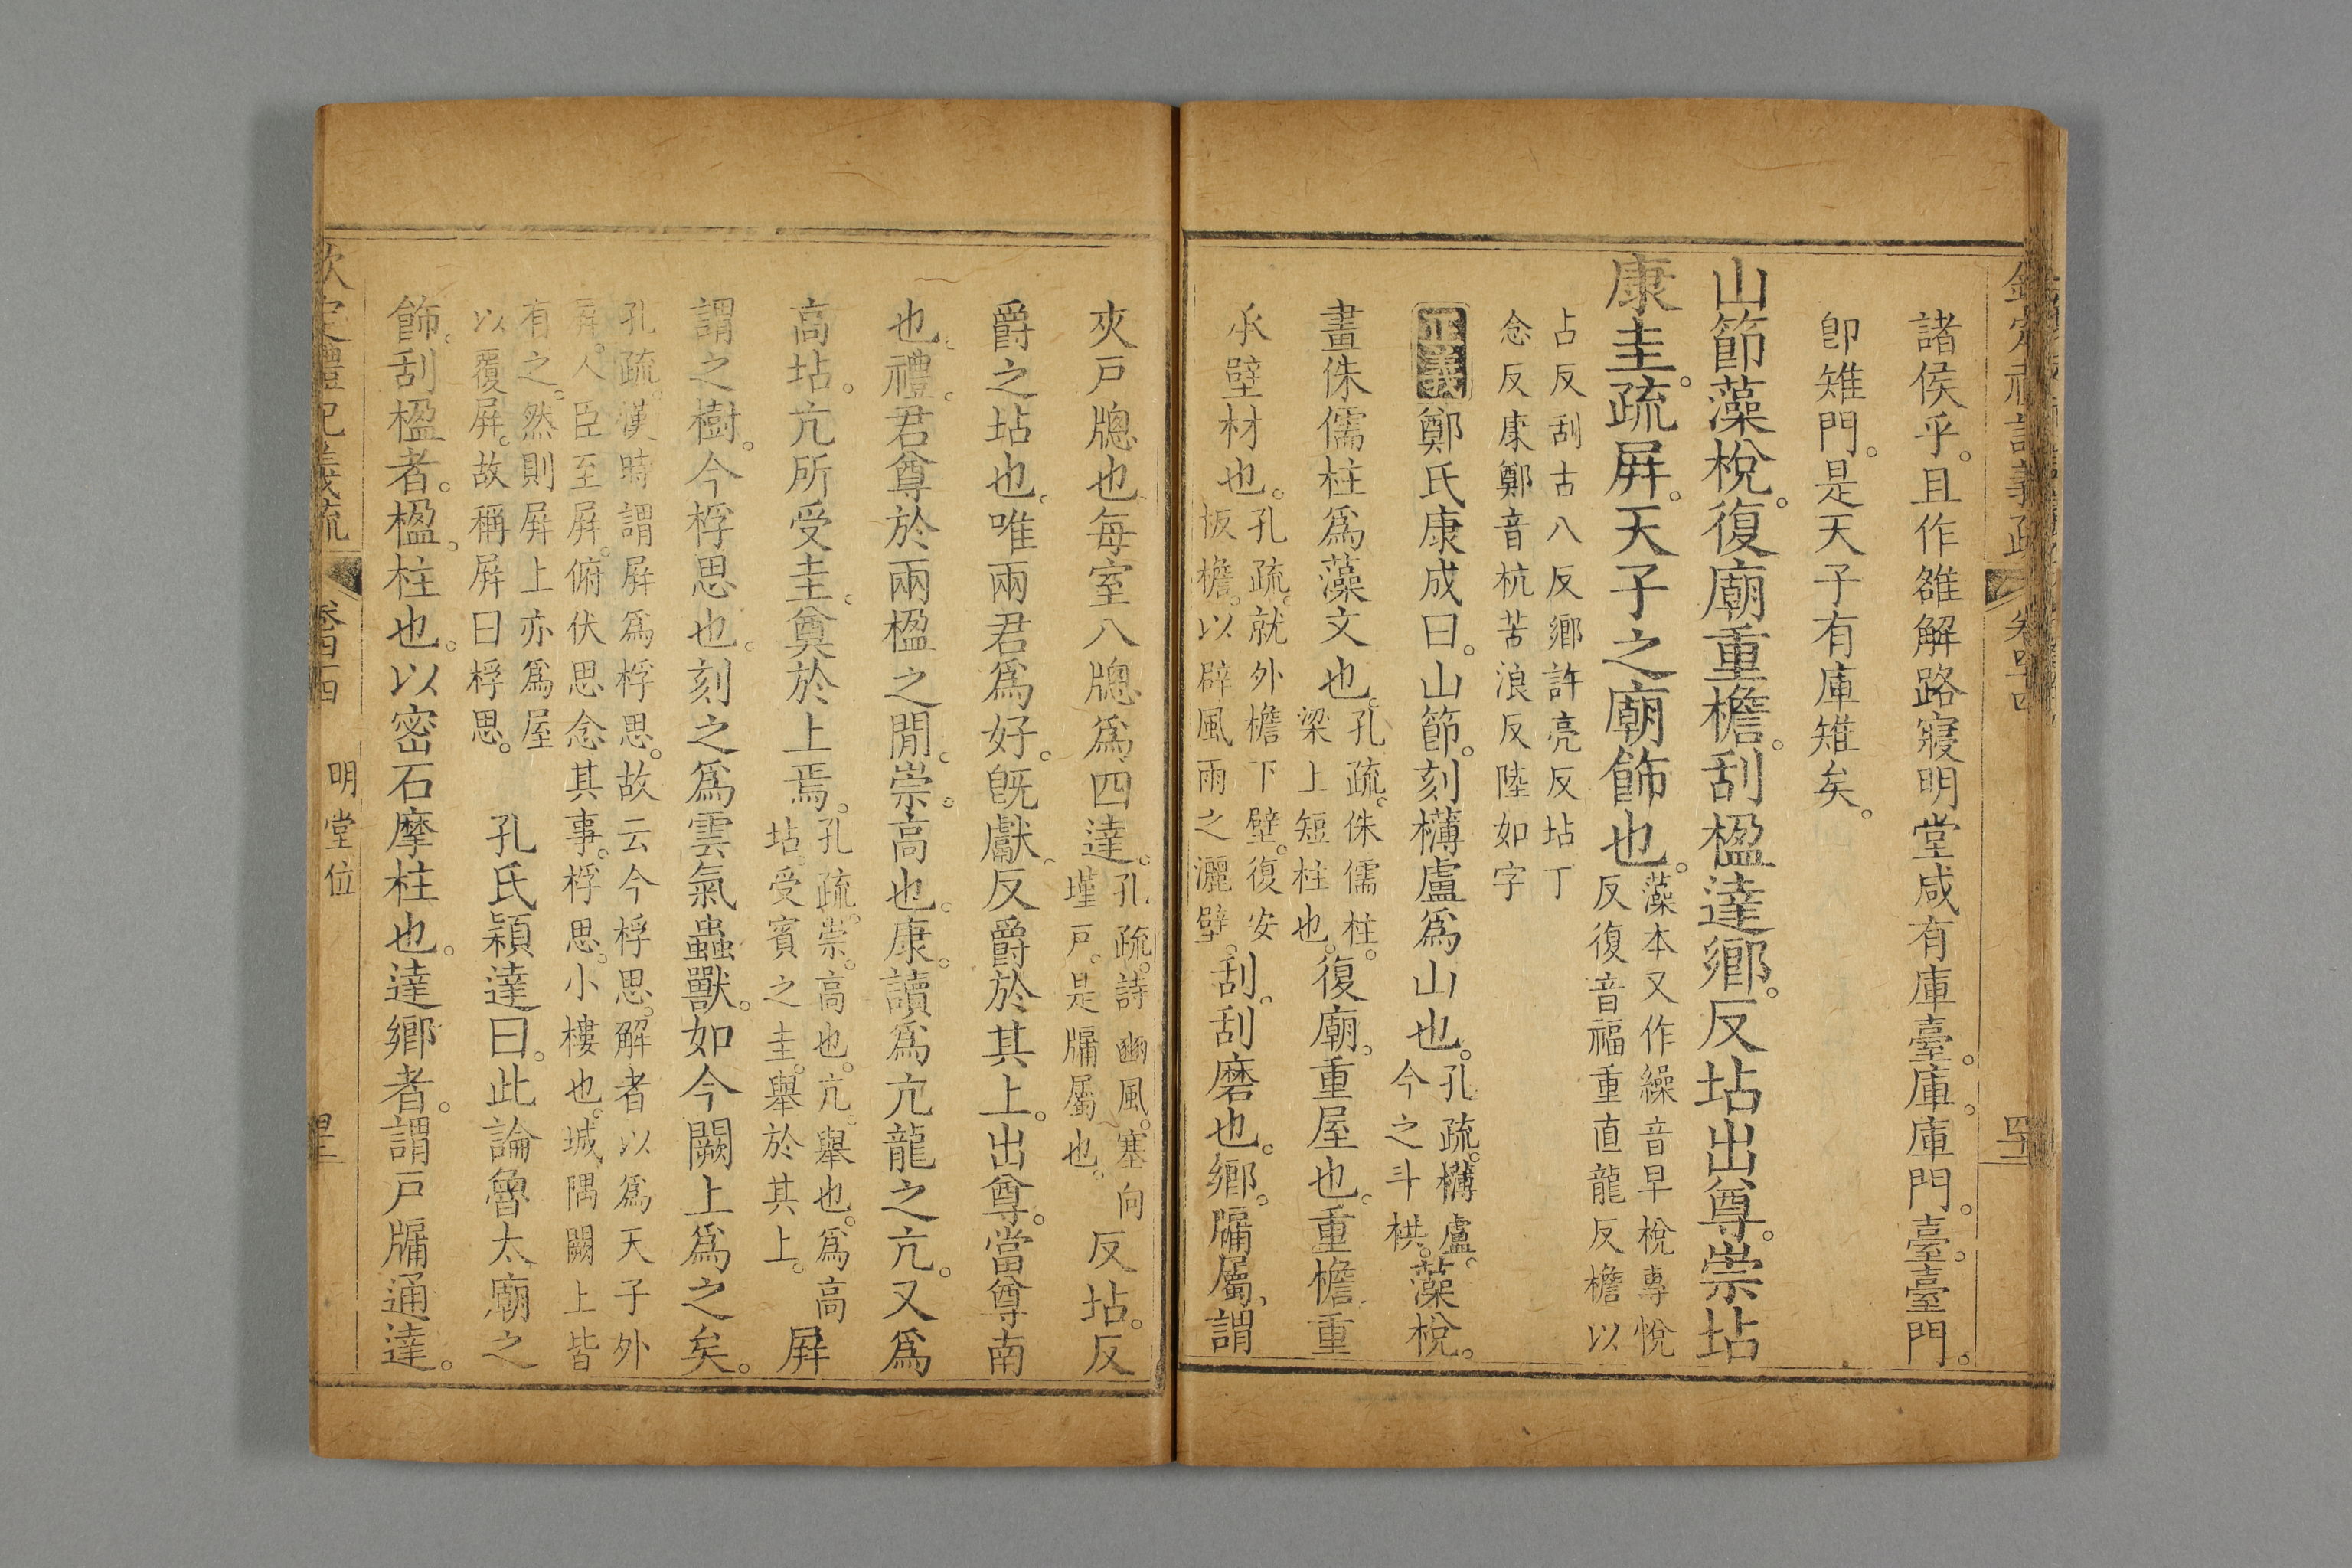 諸侯乎。且作雒解路寢明堂咸有庫臺。庫。庫門。臺。臺門。
卽雉門。是天子有庫雉矣。
山節藻梲。復廟重檐。刮楹達鄉。反坫出尊。崇坫
康圭。疏屛。天子之廟飾也。
藻本又作繰音早梲專悅
反復音福重直龍反檐以
占反刮古八反鄉許亮反坫丁
念反康鄭音杭苦浪反陸如字
正義鄭氏康成曰。山節。刻欂盧爲山也。
孔疏。欂盧。
今之斗栱。
藻梲。
畫侏儒柱爲藻文也。
孔疏。侏儒柱。
梁上短柱也。
復廟。重屋也。重檐重
承壁材也。
孔疏。就外檐下壁。復安
板檐。以辟風雨之灑壁。
刮。刮磨也。鄉。牖屬、謂
夾戸牕也。每室八牕爲四達。
孔疏。詩豳風。塞向
墐戸。是牖屬也。
反坫。反
爵之坫也。唯兩君爲好。旣獻。反爵於其上。出尊。當尊南
也。禮。君尊於兩楹之閒。崇。高也。康。讀爲亢龍之亢。又爲
高坫。亢所受圭。奠於上焉。
孔疏。崇。高也。亢。舉也。爲高
坫。受賓之圭。舉於其上。
屛
謂之樹。今桴思也。刻之爲雲氣蟲獸。如今闕上爲之矣。
孔疏。漢時謂屛爲桴思。故云今桴思。解者以爲天子外
屛。人臣至屛。俯伏思念其事。桴思。小樓也。城隅闕上皆
有之。然則屛上亦爲屋
以覆屛。故稱屛曰桴思。
孔氏穎達曰。此論魯太廟之
飾。刮楹者。楹。柱也。以密石摩柱也。達鄉者。謂戸牖通達。
欽定禮記義疏 卷四十四 明堂位